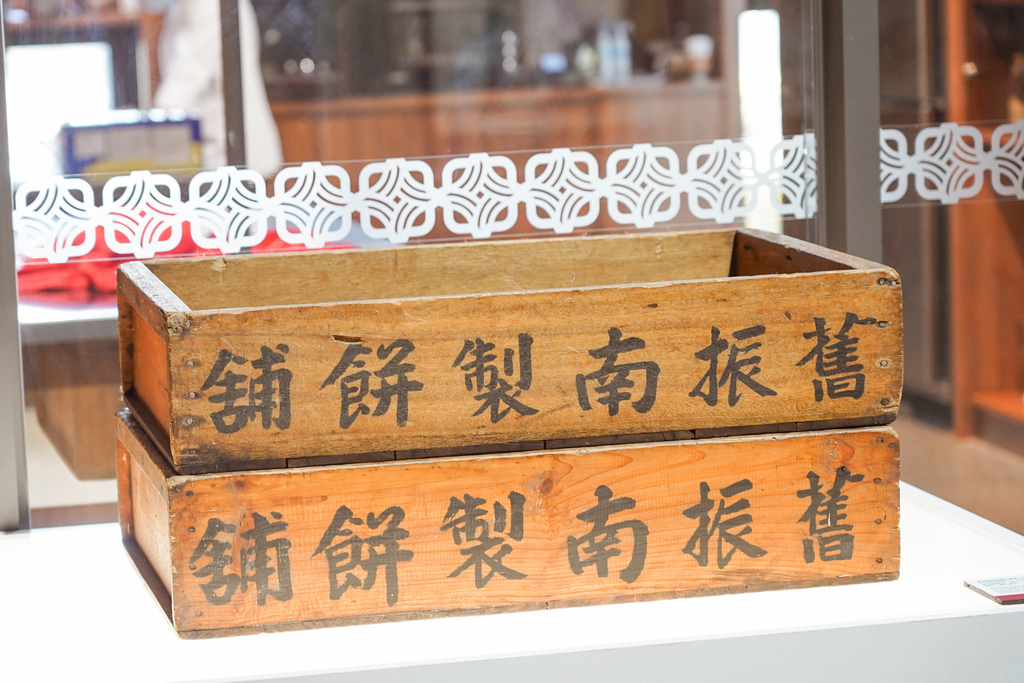 舊振南製餅舖
舊振南製餅舖